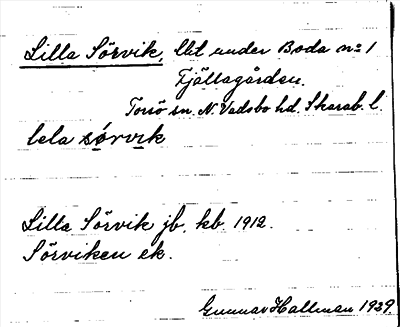 Lilla Sörvik, lht under Boda no 1
Fjällagården.
Torsö sn. N. Vadsbo hd. Skarab. l.
lela sørvik
Lilla Sörvik jb. kb. 1912.
Sörviken ek.
Gunnar Hallman 1929.